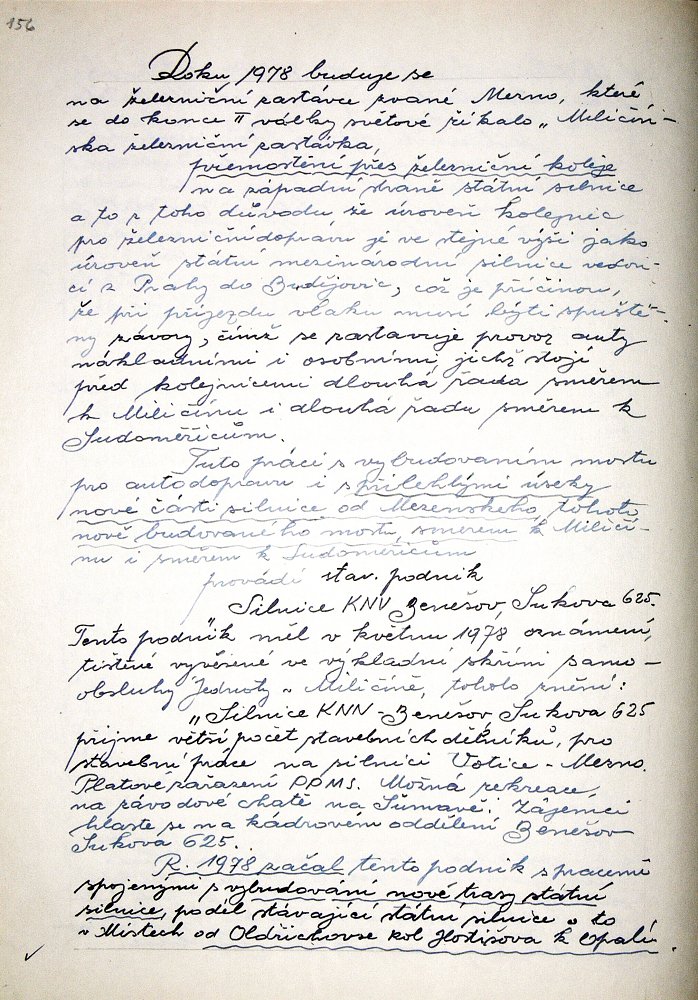 156
Roku 1978 buduje se
na železniční zastávce zvané Mezno, které
se do konce II války světové říkalo „Miličín-
ská železniční zastávka,
přemostění přes železniční koleje
na západní straně státní silnice
a to z toho důvodu že úroveň kolejnic
pro železniční dopravu je ve stejné výši jako
úroveň státní mezinárodní silnice vedou-
cí z Prahy do Budějovic, což je příčinou,
že při příjezdu vlaku musí býti spuště-
ny závory, čímž se zastavuje provoz auty
nákladními i osobními jichž stojí
před kolejnicemi dlouhá řada směrem
k Miličínu i dlouhá řada směrem k
Sudoměřicům.
Tuto práci s vybudovaním mostu
pro autodopravu i s přilehlými úseky
nové části silnice od Mezenského, tohoto
nově budovaného mostu, směrem k Miličí-
nu i směrem k Sudoměřicům
provádí stav. podnik
Silnice KNV Benešov, Sukova 625.
Tento podnik měl v květnu 1978 oznámení,
tištěné vyvěšené ve výkladní skříni samo-
obsluhy Jednoty v Miličíně, tohoto znění:
„Silnice KNN - Benešov, Sukova 625
přijme větší počet stavebních dělníků, pro
stavební práce na silnici Votice - Mezno.
Platové zařazení PPMS. Možná rekreace,
na závodové chatě na Šumavě. Zájemci
hlaste se na kádrovém oddělení Benešov
Sukova 625.
R. 1978 začal tento podnik s pracemi
spojenými s vybudování nové trasy státní
silnice, podél stávající státní silnice a to
v Místech od Oldřichovse kol Hostišova k Opalí.